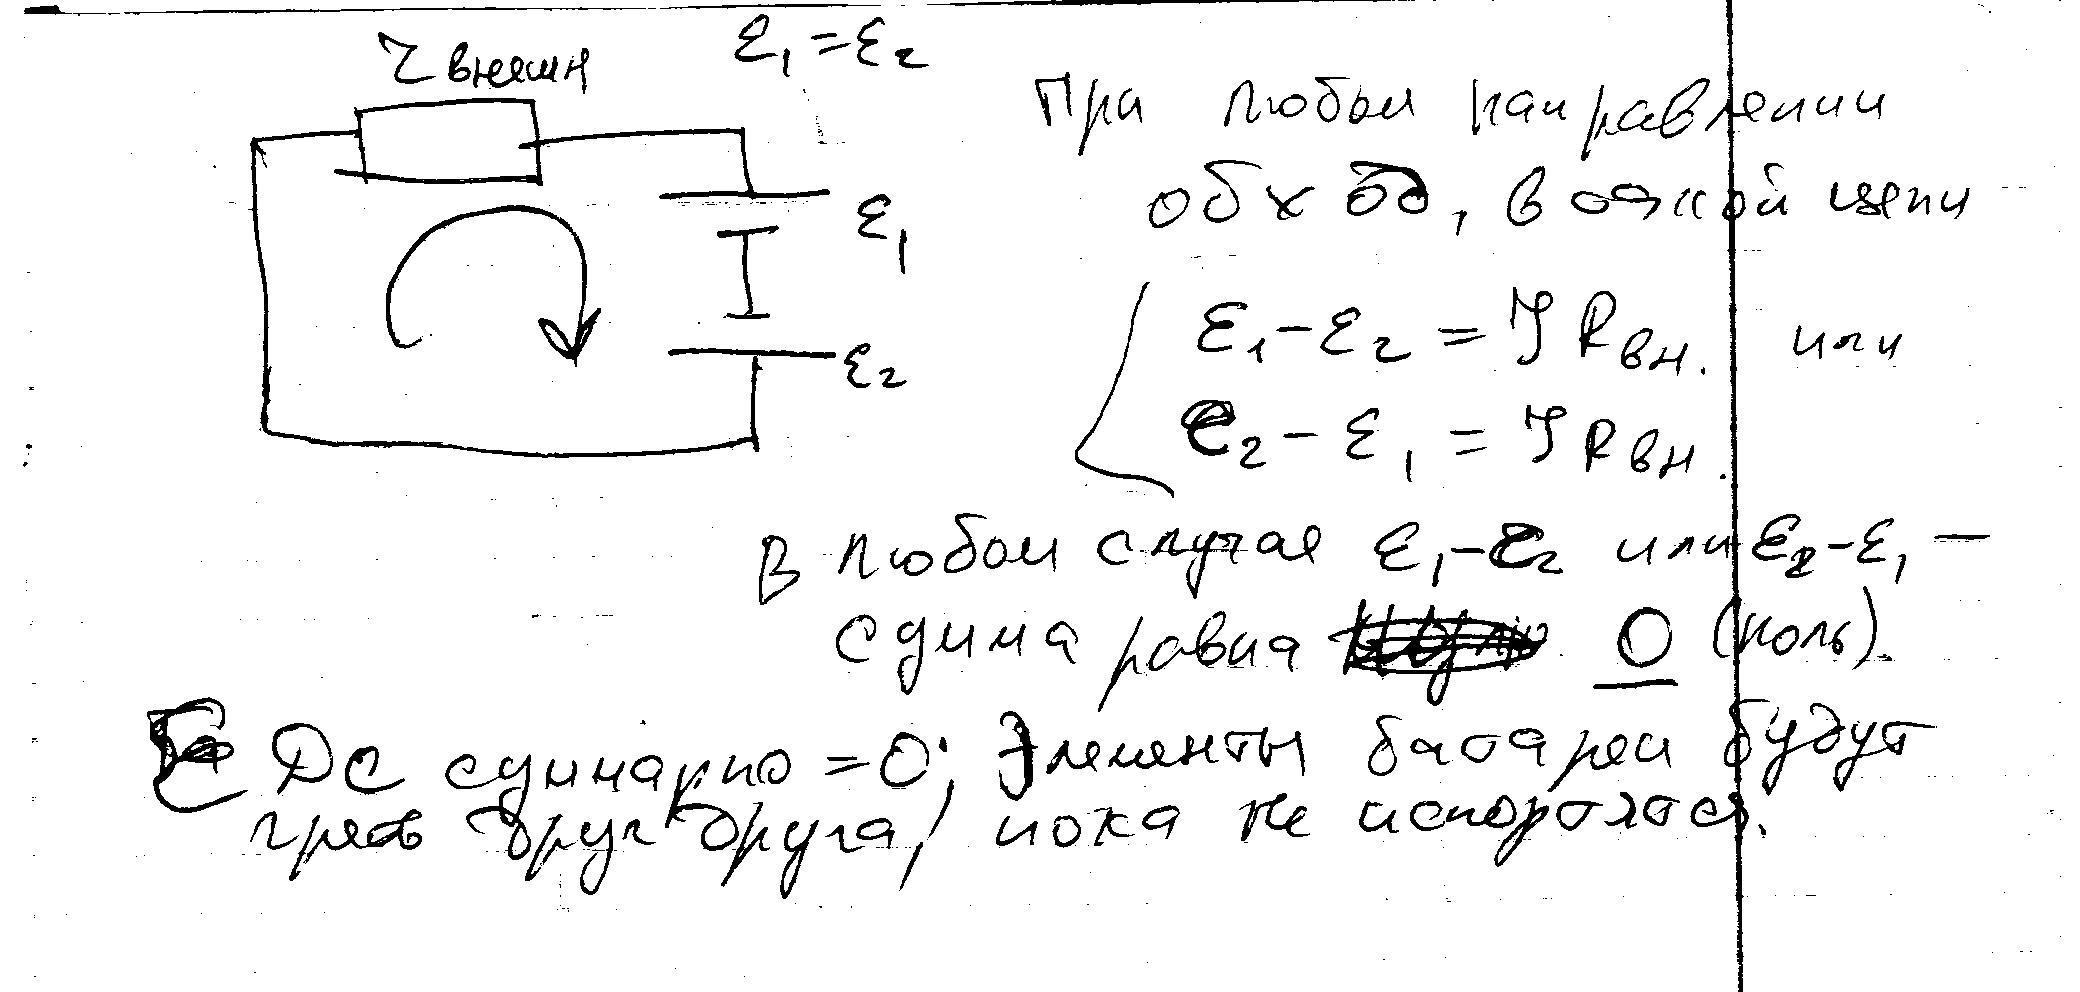 r внешн
ε₁ = ε₂
ε₁
ε₂
При любом направлении
обход, в одной цепи
ε₁ - ε₂ = J Rвн. или
ε₂ - ε₁ = J Rвн.
В любом случае ε₁-ε₂ или ε₂-ε₁ —
сумма равна 0 (ноль).
ЭДС суммарно = 0; Элементы батареи будут
греть друг друга, пока не испортятся.